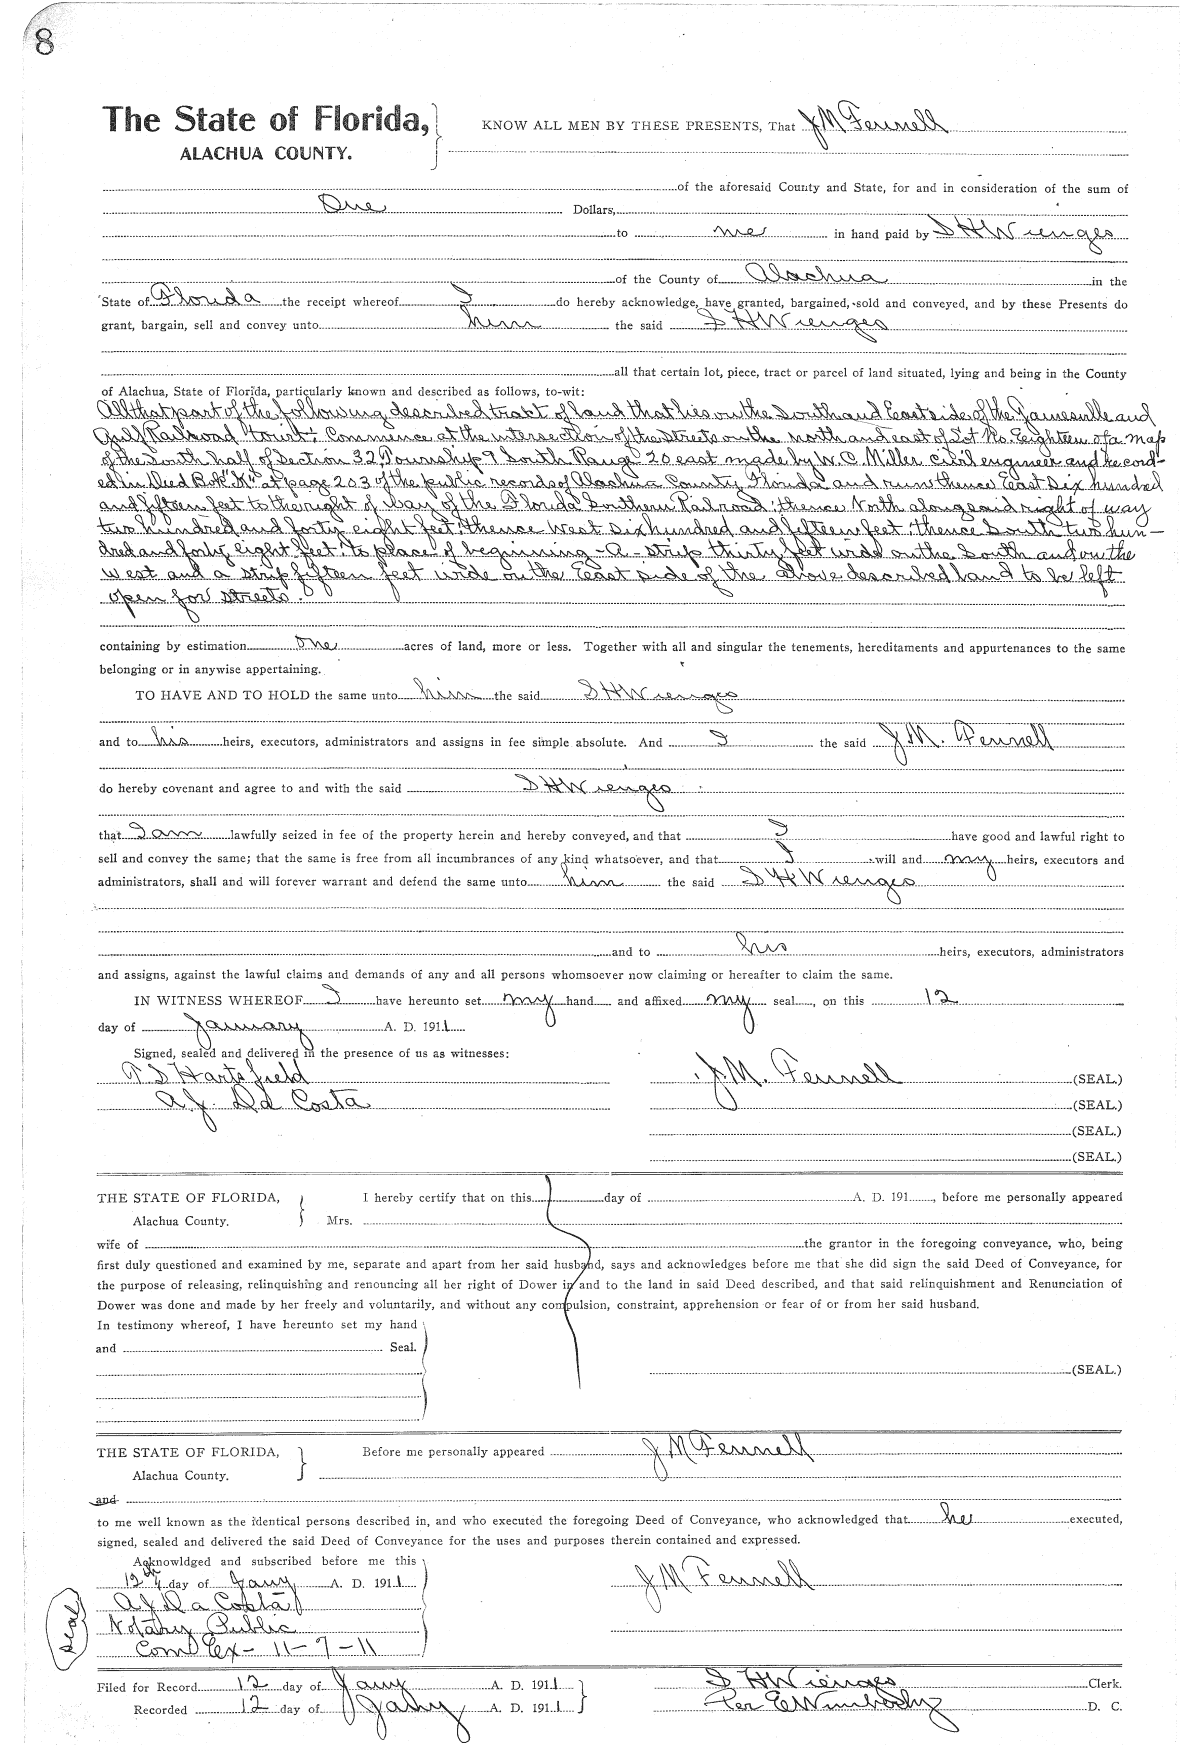 8
The State of Florida,
ALACHUA COUNTY.
KNOW ALL MEN BY THESE PRESENTS, That J M Fennell
of the aforesaid County and State, for and in consideration of the sum of
One Dollars,
to me in hand paid by S H Wienges
of the County of Alachua in the
State of Florida the receipt whereof I do hereby acknowledge, have granted, bargained, sold and conveyed, and by these Presents do
grant, bargain, sell and convey unto him the said S H Wienges
all that certain lot, piece, tract or parcel of land situated, lying and being in the County
of Alachua, State of Florida, particularly known and described as follows, to-wit:
All that part of the following described tract of land that lies on the South and East side of the Jainesville and
Gulf Railroad "towit": Commence at the intersection of the streets on the north and east of Lot No. Eighteen of a map
of the South half of Section 32, Township 9 South Range 20 east made by W. C. Miller civil engineer and record-
ed in Deed Book "N" at page 203 of the public records of Alachua County, Florida and run thence East six hundred
and fifteen feet to the right of way of the Florida Southern Railroad, thence North along said right of way
two hundred and forty eight feet, thence West six hundred and fifteen feet, thence South two hun-
dred and forty eight feet to place of beginning - A - strip thirty feet wide on the South and on the
West and a strip fifteen feet wide on the East side of the above described land to be left
open for streets.
containing by estimation one acres of land, more or less. Together with all and singular the tenements, hereditaments and appurtenances to the same
belonging or in anywise appertaining.
TO HAVE AND TO HOLD the same unto him the said S H Wienges
and to his heirs, executors, administrators and assigns in fee simple absolute. And I the said J. M. Fennell
do hereby covenant and agree to and with the said S H Wienges
that I am lawfully seized in fee of the property herein and hereby conveyed, and that I have good and lawful right to
sell and convey the same; that the same is free from all incumbrances of any kind whatsoever, and that I will and my heirs, executors and
administrators, shall and will forever warrant and defend the same unto him the said S H Wienges
and to his heirs, executors, administrators
and assigns, against the lawful claims and demands of any and all persons whomsoever now claiming or hereafter to claim the same.
IN WITNESS WHEREOF I have hereunto set my hand and affixed my seal, on this 12
day of January A. D. 1911
Signed, sealed and delivered in the presence of us as witnesses:
T S Hartsfield
J. M. Fennell (SEAL.)
A. J. Da Costa
(SEAL.)
(SEAL.)
(SEAL.)
THE STATE OF FLORIDA,
Alachua County.
I hereby certify that on this day of A. D. 191 , before me personally appeared
Mrs.
wife of the grantor in the foregoing conveyance, who, being
first duly questioned and examined by me, separate and apart from her said husband, says and acknowledges before me that she did sign the said Deed of Conveyance, for
the purpose of releasing, relinquishing and renouncing all her right of Dower in and to the land in said Deed described, and that said relinquishment and Renunciation of
Dower was done and made by her freely and voluntarily, and without any compulsion, constraint, apprehension or fear of or from her said husband.
In testimony whereof, I have hereunto set my hand
and Seal.
(SEAL.)
THE STATE OF FLORIDA,
Alachua County.
Before me personally appeared J M Fennell
and
to me well known as the identical persons described in, and who executed the foregoing Deed of Conveyance, who acknowledged that he executed,
signed, sealed and delivered the said Deed of Conveyance for the uses and purposes therein contained and expressed.
Acknowldged and subscribed before me this
12th day of Jany A. D. 1911
J M Fennell
A J Da Costa
Notary Public
Com Ex - 11-7-11
Seal
Filed for Record 12 day of Jany A. D. 1911
S H Wienges Clerk.
Recorded 12 day of Jany A. D. 1911
Per E Wimberly D. C.